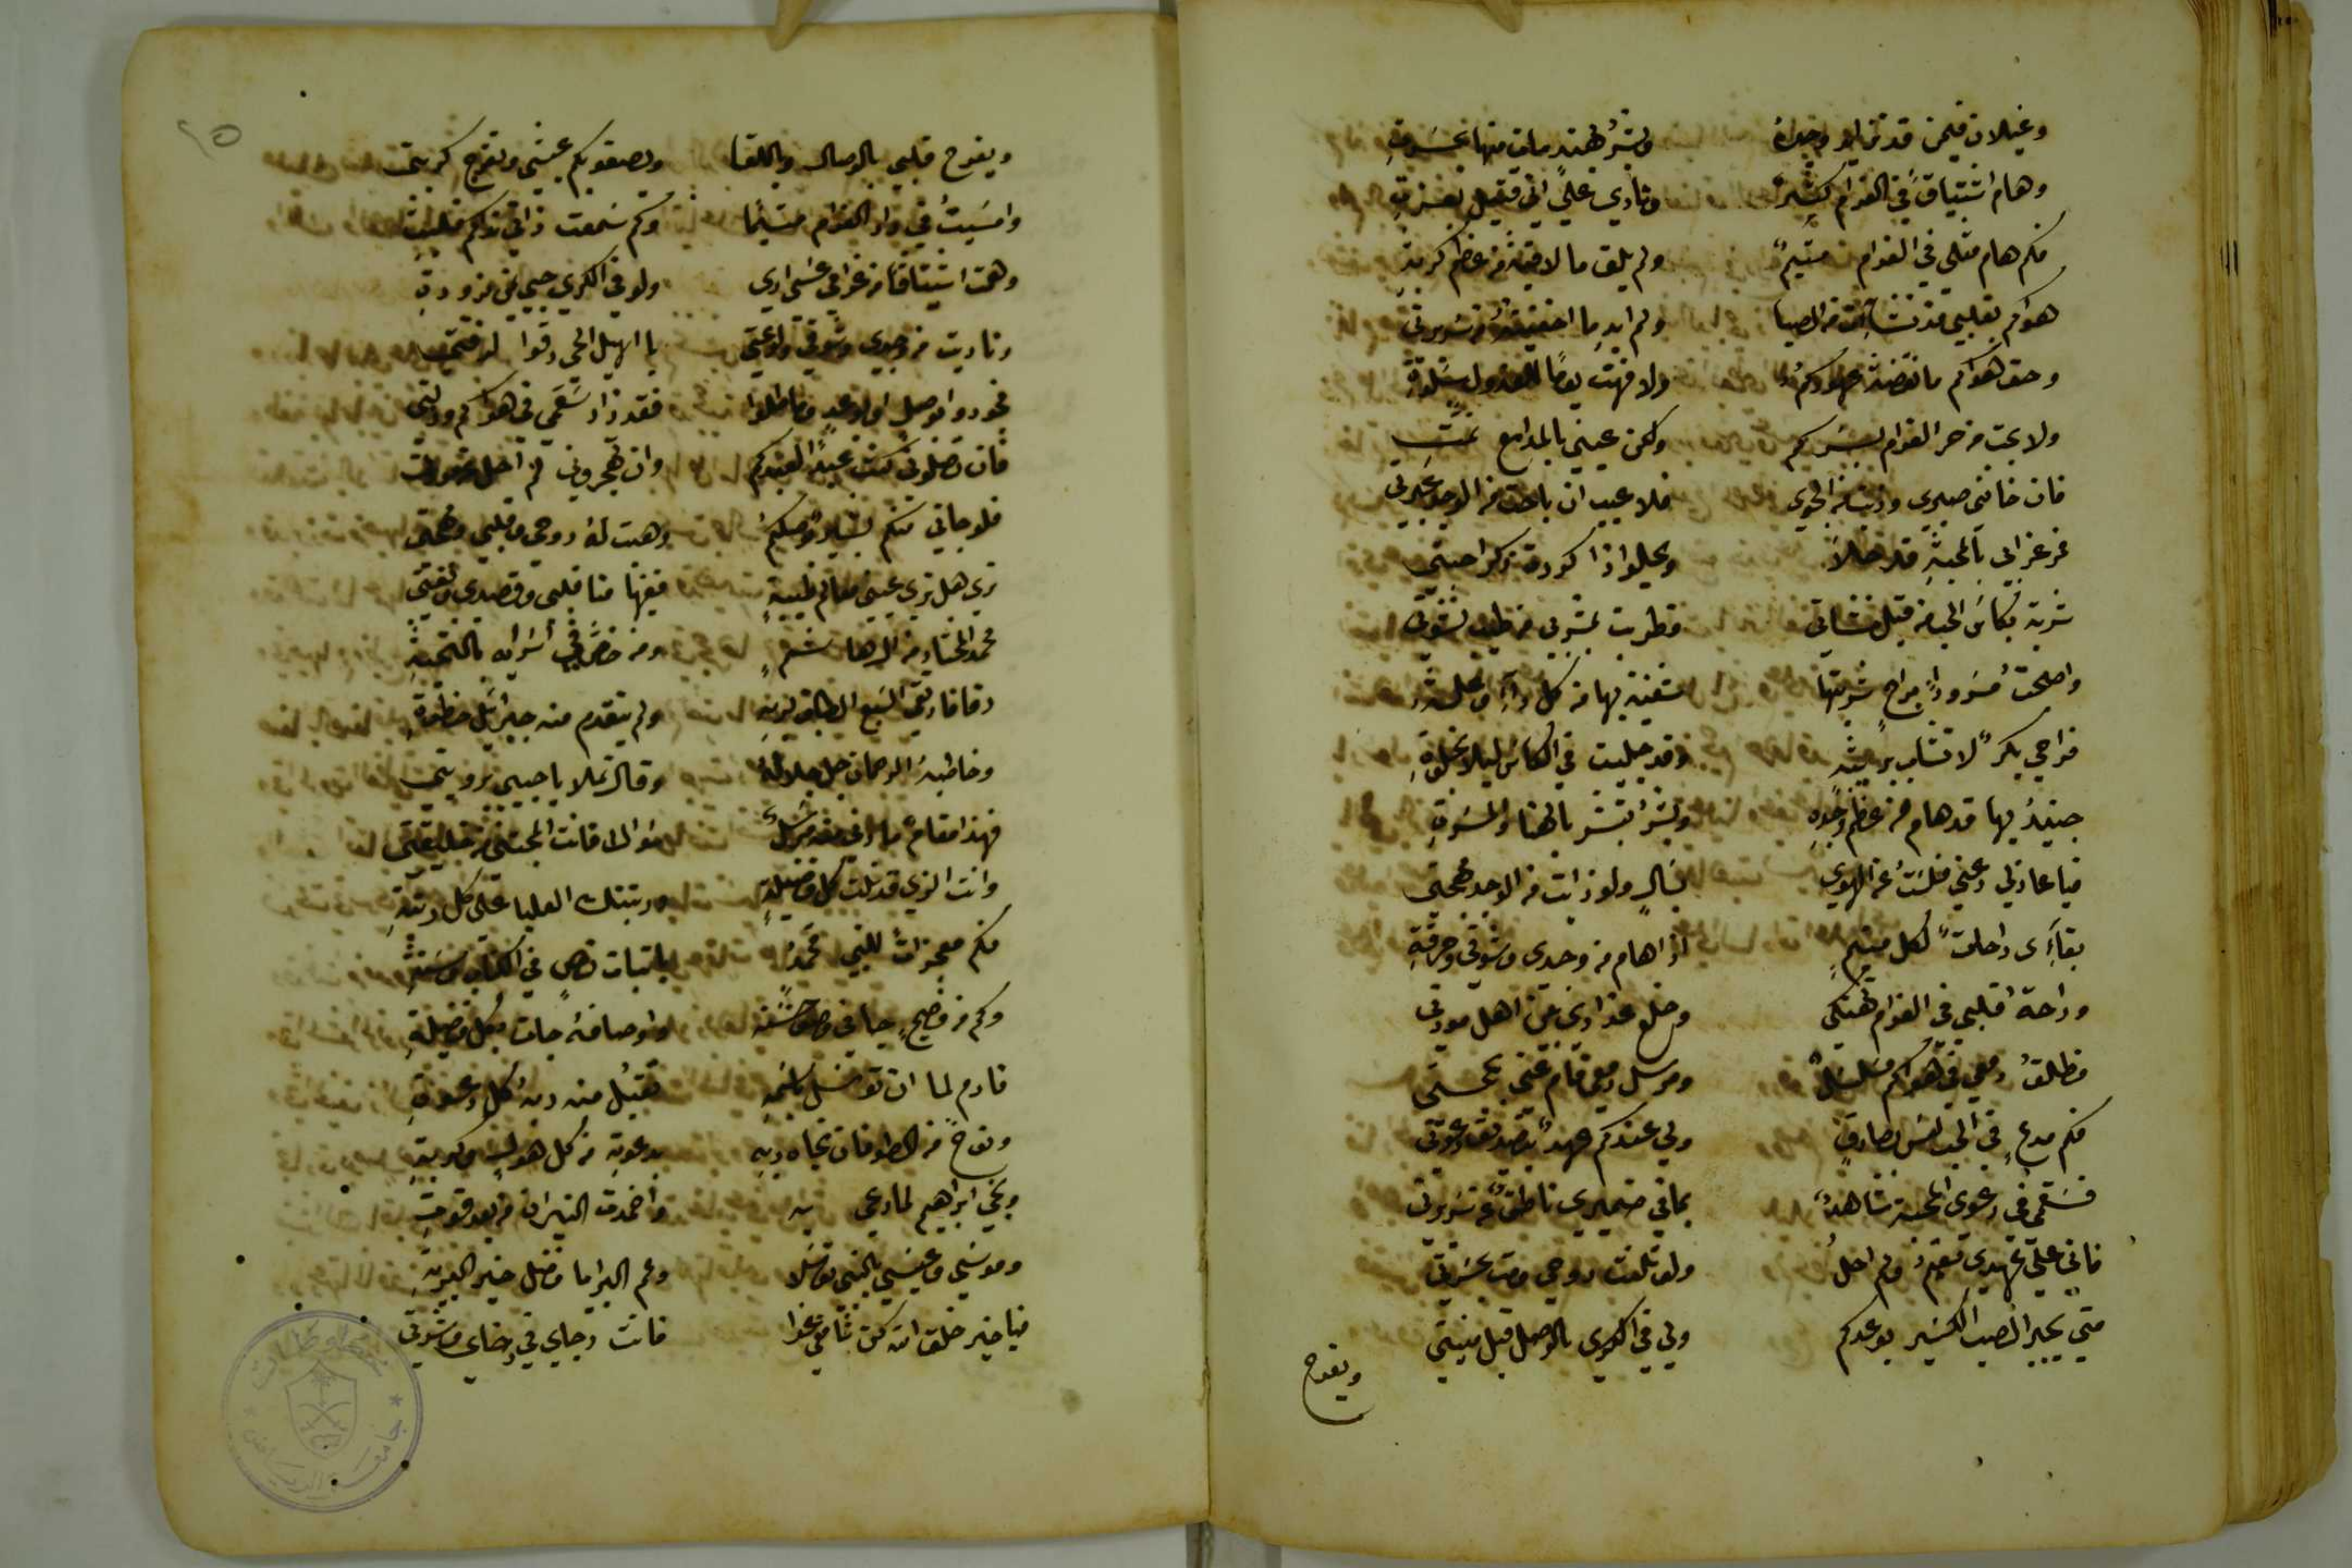 وغيلان فيمن قد تزايد وجده وبشر لهند مات منها بحسرة
وهام اشتياقا في الغرام كثير ونادى على اني قتيل بعزة
فكم هام مثلي في الغرام متيم ولم يلق ما لاقيت من عظم كربة
هواكم بقلبي قد نشا من الصبا ولم ابد ما اخفيته من سريرتي
وحق هواكم ما نقضت عهودكم ولا فهت يوما للعذول بسلوة
ولا بحت من حر الغرام بسركم ولكن عيني بالمدامع نمت
فان خانني صبري وذبت من الجوى فلا عيب ان باحت من الوجد عبرتي
غرامي بالمحبة قد حلا ويحلو اذا كررت ذكر احبتي
شربت بكاس الحب من قبل نشاتي وطربت بشربي من طيب نشوتي
واصلحت مسرورا براح شربتها شفيت بها من كل داء وعلة
فراحي بكر لا تشاب وقد جليت في الكاس ليلا بخلوة
جنيد بها قد هام من عظم وجده وبشر تبشر بالهنا والمسرة
فيا عاذلي دعني فلست عن الهوى بسال ولو ذابت من الوجد مهجتي
لكل متيم اذا هام من وجدي وشوقي وحرقة
وراحة قلبي في الغرام تهتكي وخلع عذاري بين اهل مودتي
فطلق دمعي في هواكم مسلسل ومرسل دمعي قام عني بحجتي
فكم مدع في الحب ليس بصادق ولي عندكم عهد بتصديق دعوتي
فسقمي في دعوى المحبة شاهد بما في ضميري ناطق عن سريرتي
فاني على عهدي مقيم ولم احل ولو تلفت روحي ومت بحسرتي
متى يجبر الصب الكسير بوعدكم ولي في الكرى بالوصل قبل منيتي
ويفرح
٢٥
ويفرح قلبي بالوصال وباللقا ويصفو بكم عيشي وتفرج كربتي
وامسيت في واد الغرام متيما وكم سمعت ذاتي
وهمت اشتياقا من غرامي عسى ارى ولو في الكرى حبي يمن بزورة
وناديت من وجدي وشوقي ولوعتي يا اهيل الحي رقوا لوقفتي
فجودوا بوصل او بوعد وماطلوا فقد زاد سقمي في هواكم وذلتي
فان تصلوني كنت عبدا لعبدكم وان تهجروني لم احل عن مودتي
فلو جاني منكم بشير بوصلكم وهبت له روحي وقلبي ومهجتي
ترى هل ترى عيني معالم طيبة ففيها منا قلبي وقصدي وبغيتي
محمد المختار من ال هاشم ومن خص في اسرايه بالتحية
رقا فارتقى السبع الطباق لربه ولم يتقدم منه جبرائيل خطوة
وخاطبه الرحمان جل جلاله وقال تملا يا حبيبي برويتي
فهذا مقام ما رقى فيه مرسل سواك فانت المجتبى من خليقتي
وانت الذي قد نلت كل فضيلة ورتبتك العليا على كل رتبة
فكم معجزات للنبي محمد باثبات نص في الكتاب وسنة
وكم من فصيح جا في وصف حسنه واوصافه جات بكل فضيلة
فادم لما ان توسل باسمه تقبل منه ربه كل دعوة
ونوح من الطوفان نجاه ربه بدعوته من كل هول وكربة
ونجي ابراهيم لما دعي به واخمدت النيران من بعد قوة
وموسى وعيسى بالنبي توسلا وعم البرايا فضل خير البرية
فيا خير خلق الله كن شافعي غدا فانت رجاي في رخاي وشدتي
جامعة الرياض